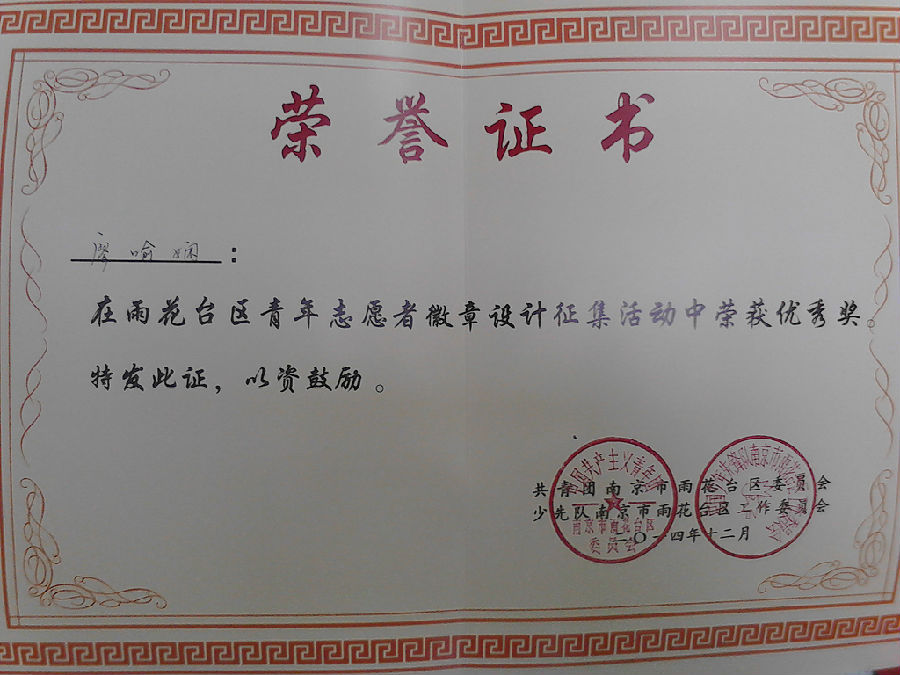 荣誉证书
廖喻娴：
在雨花台区青年志愿者徽章设计征集活动中荣获优秀奖。
特发此证，以资鼓励。
共青团南京市雨花台区委员会
少先队南京市雨花台区工作委员会
二〇一四年十二月
中国共产主义青年团
南京市雨花台区
委员会